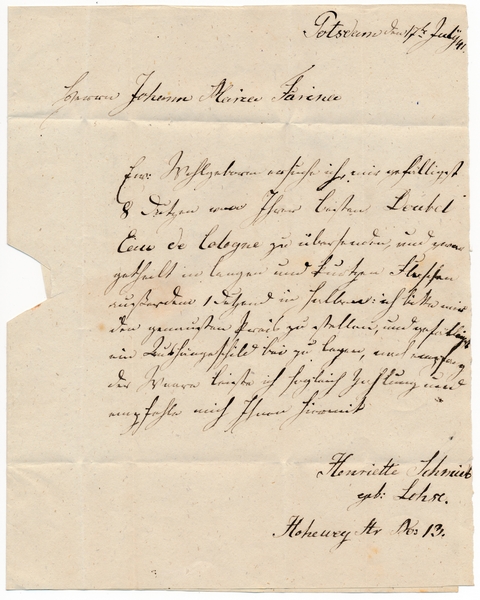 Potsdam den 17t July 41.
Herrn Johann Maria Farina
Ew: Wohlgeboren ersuche ich, mir gefälligst
8 Dutzen von Ihrer besten Doubel
Eau de Cologne zu übersenden, und zwar
getheilt in langen und kurtzen Flaschen
außerdem 1 Dutzend in halben: ich bitte mir
den genausten Preis zu stellen, und gefälligst
ein Aushängeschild bei zu legen, nach Empfang
der Waare leiste ich sogleich Zahlung und
empfehle mich Ihnen hiermit
Henriette Schmidt
geb: Lohse.
Hoheweg Str No: 13.